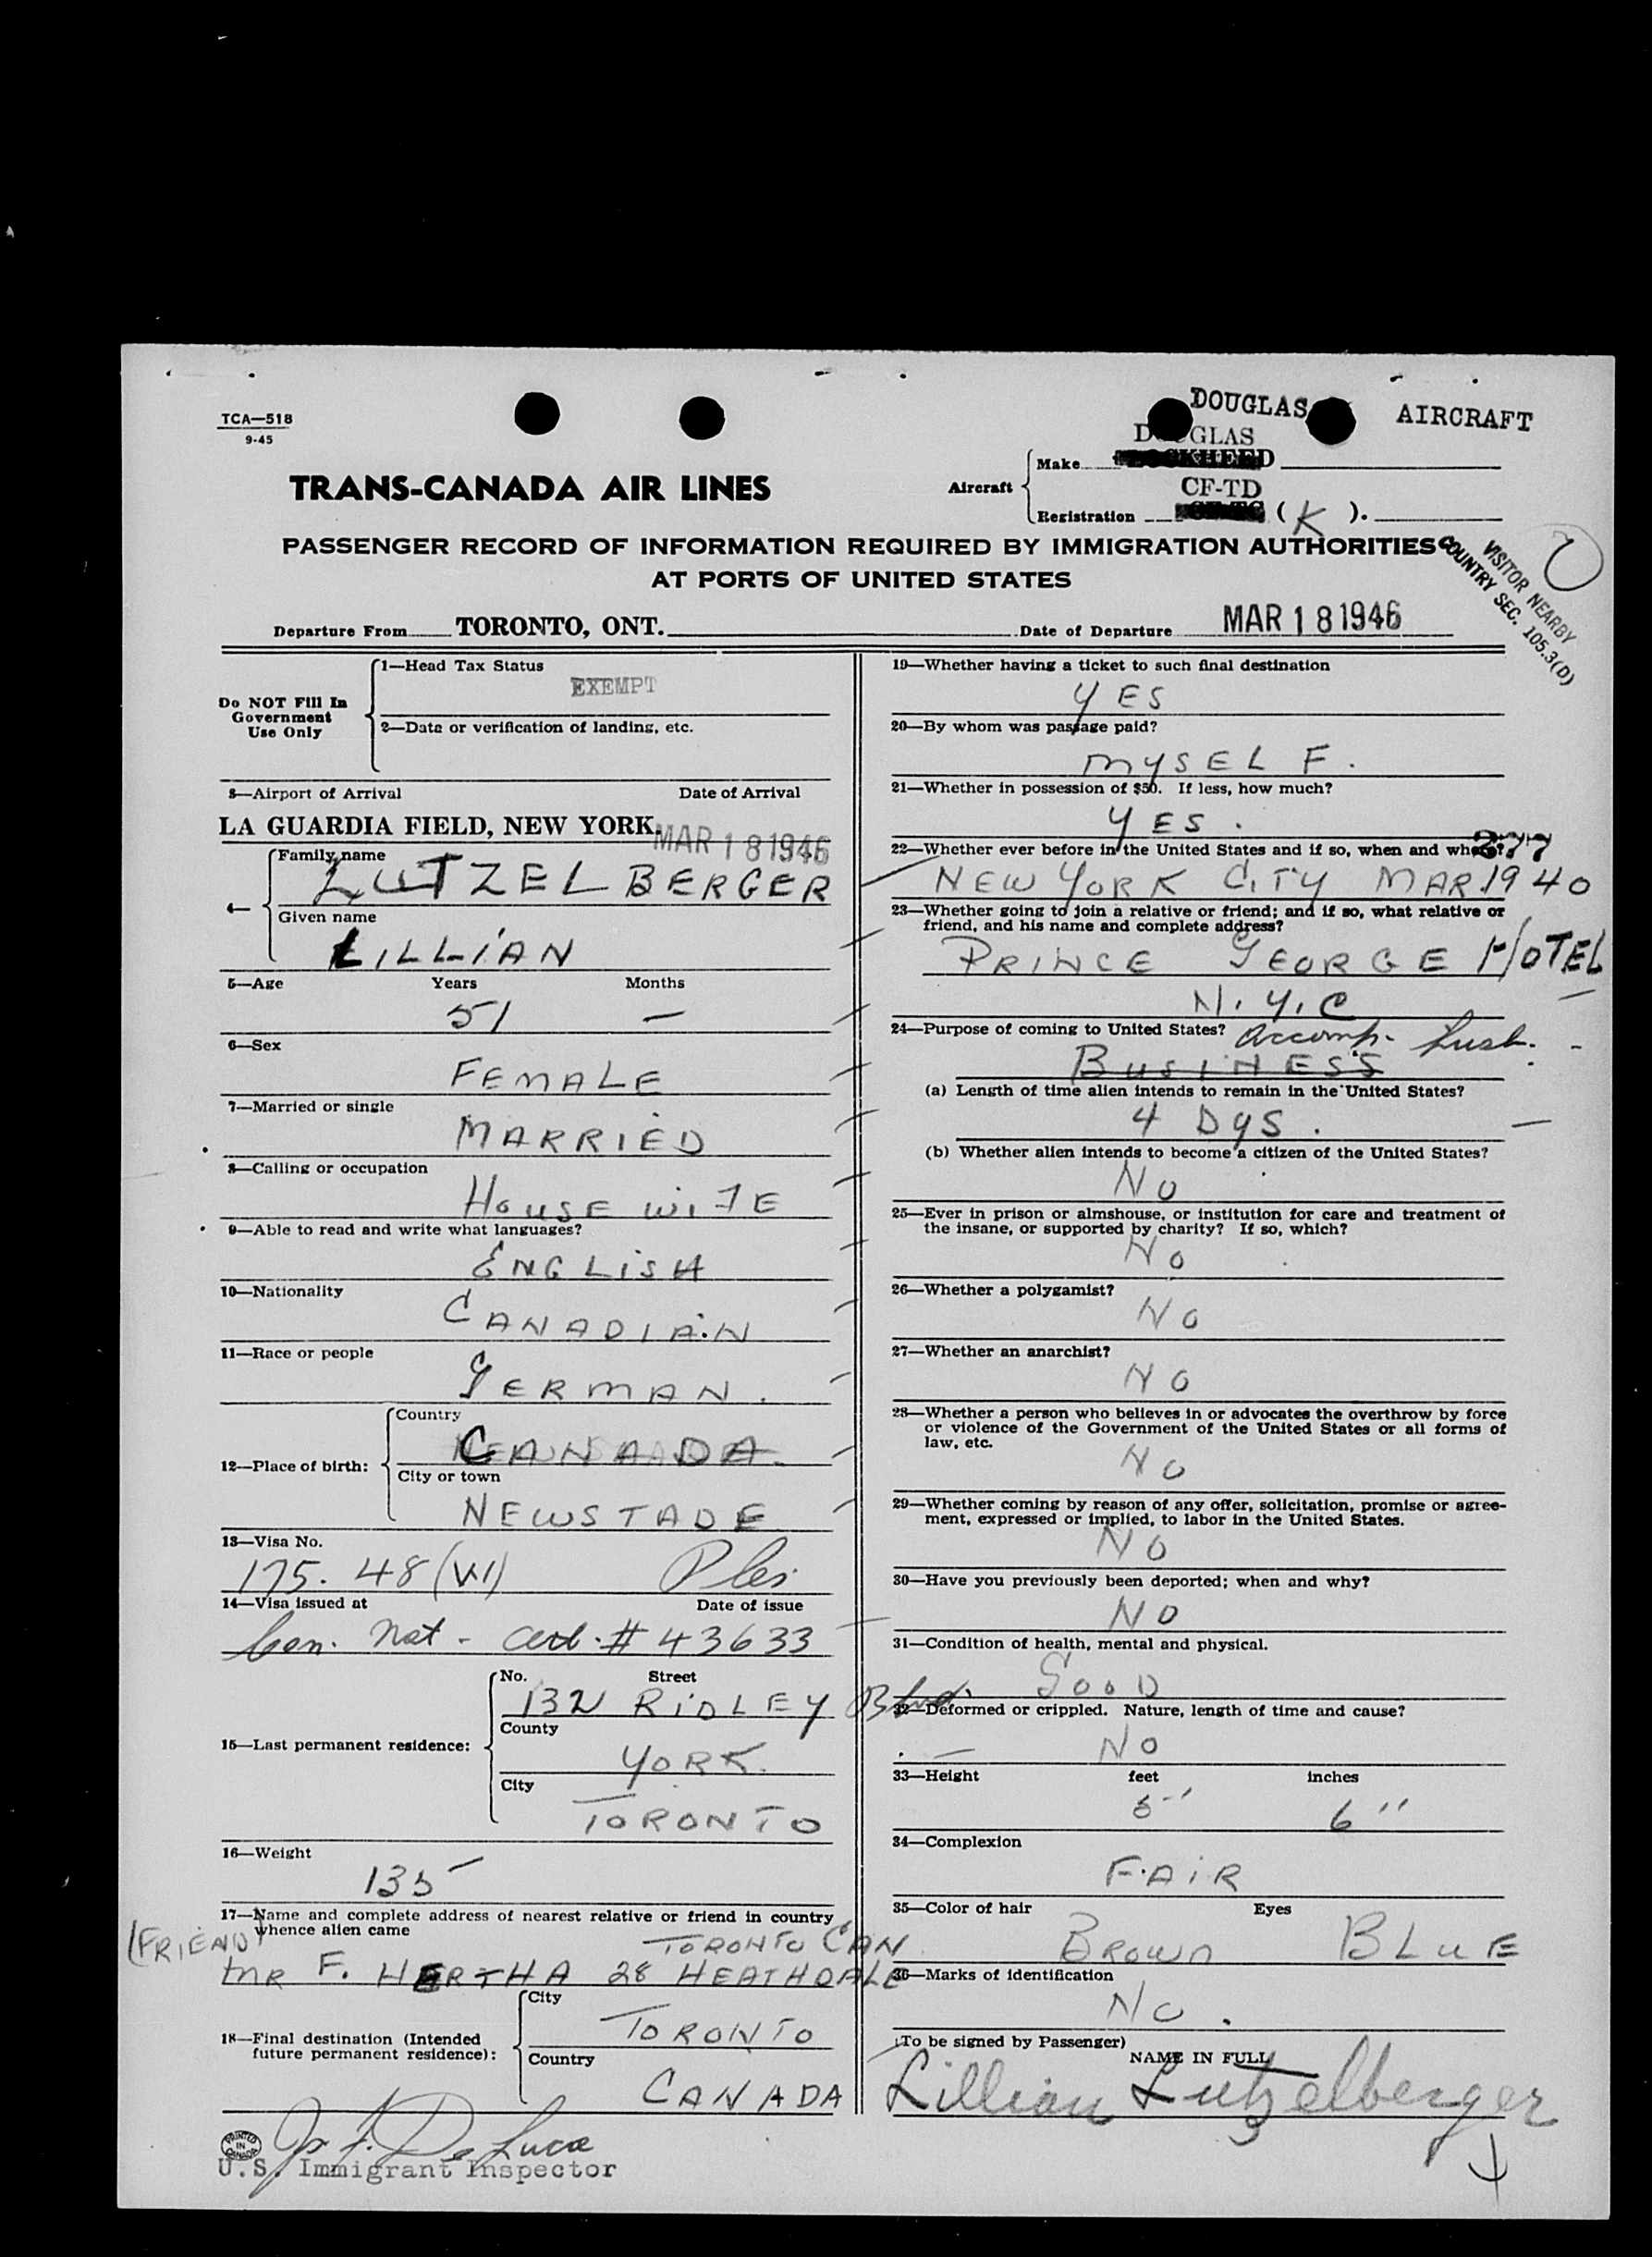 TCA—518
9-45
DOUGLAS AIRCRAFT
DOUGLAS
TRANS-CANADA AIR LINES
Aircraft
Make LOCKHEED
CF-TD
Registration (K).
PASSENGER RECORD OF INFORMATION REQUIRED BY IMMIGRATION AUTHORITIES
AT PORTS OF UNITED STATES
VISITOR NEARBY
COUNTRY SEC. 105.3(D)
Departure From TORONTO, ONT. Date of Departure MAR 18 1946
Do NOT Fill In
Government
Use Only
1—Head Tax Status
EXEMPT
2—Date or verification of landing, etc.
3—Airport of Arrival Date of Arrival
LA GUARDIA FIELD, NEW YORK. MAR 18 1946
4—
Family name
LUTZELBERGER
Given name
LILLIAN
5—Age Years Months
51 —
6—Sex
FEMALE
7—Married or single
MARRIED
8—Calling or occupation
HOUSE WIFE
9—Able to read and write what languages?
ENGLISH
10—Nationality
CANADIAN
11—Race or people
GERMAN.
12—Place of birth:
Country
CANADA
City or town
NEWSTADE
13—Visa No.
175.48 (VI)
14—Visa issued at Date of issue
Can. Nat - Cert. # 43633
15—Last permanent residence:
No. Street
132 RIDLEY Blvd.
County
YORK.
City
TORONTO
16—Weight
135
17—Name and complete address of nearest relative or friend in country
whence alien came
(FRIEND) TORONTO CAN
MR F. HERTHA 28 HEATHDALE
18—Final destination (Intended
future permanent residence):
City
TORONTO
Country
CANADA
PRINTED
IN
CANADA
J. F. De Luca
U.S. Immigrant Inspector
19—Whether having a ticket to such final destination
YES
20—By whom was passage paid?
MYSELF.
21—Whether in possession of $50. If less, how much?
YES.
377
22—Whether ever before in the United States and if so, when and where?
NEW YORK CITY MAR. 1940
23—Whether going to join a relative or friend; and if so, what relative or
friend, and his name and complete address?
PRINCE GEORGE HOTEL
N.Y.C
24—Purpose of coming to United States? Accomp. husb.
BUSINESS
(a) Length of time alien intends to remain in the United States?
4 DYS.
(b) Whether alien intends to become a citizen of the United States?
NO
25—Ever in prison or almshouse, or institution for care and treatment of
the insane, or supported by charity? If so, which?
NO
26—Whether a polygamist?
NO
27—Whether an anarchist?
NO
28—Whether a person who believes in or advocates the overthrow by force
or violence of the Government of the United States or all forms of
law, etc.
NO
29—Whether coming by reason of any offer, solicitation, promise or agree-
ment, expressed or implied, to labor in the United States.
NO
30—Have you previously been deported; when and why?
NO
31—Condition of health, mental and physical.
GOOD
32—Deformed or crippled. Nature, length of time and cause?
NO
33—Height feet inches
5' 6"
34—Complexion
FAIR
35—Color of hair Eyes
BROWN BLUE
36—Marks of identification
NO.
(To be signed by Passenger)
NAME IN FULL
Lillian Lutzelberger